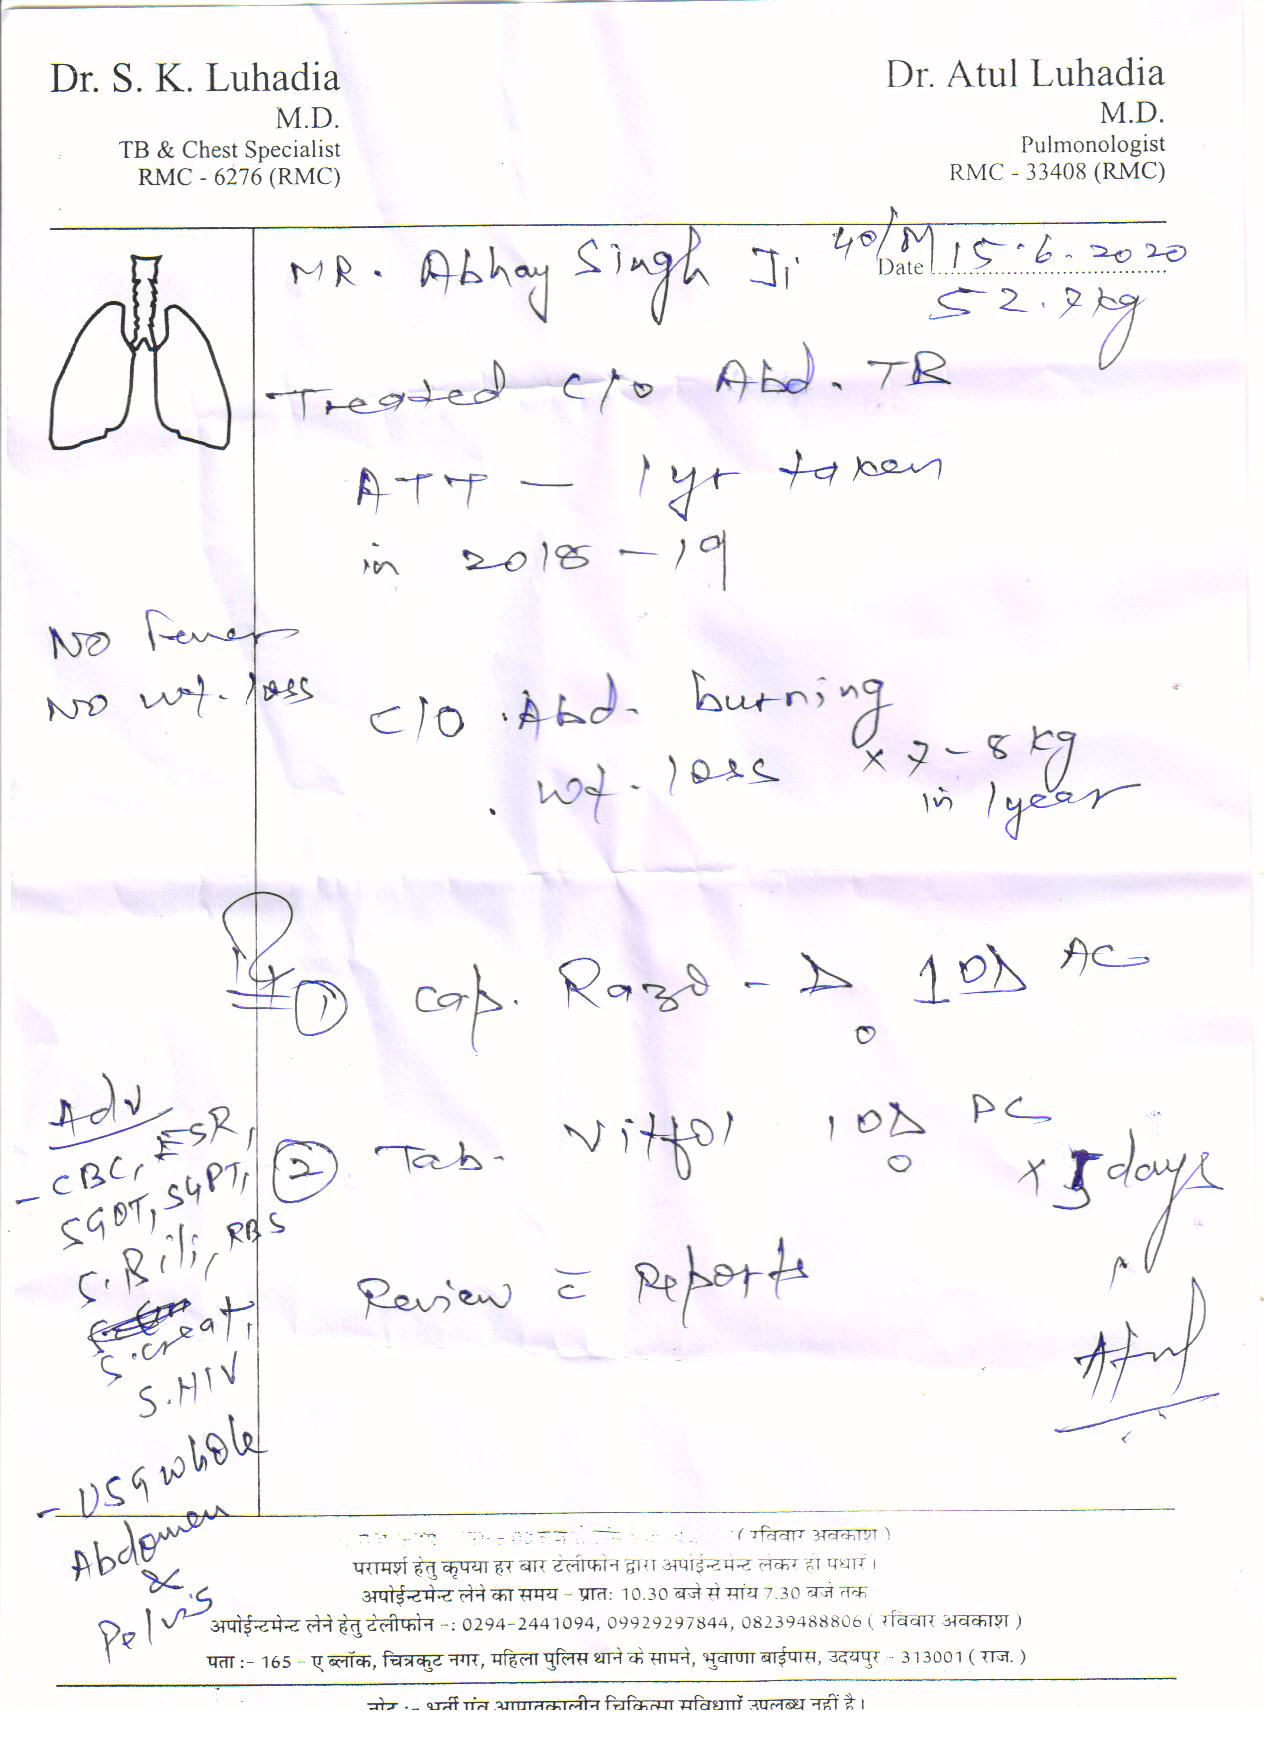 Dr. S. K. Luhadia
M.D.
TB & Chest Specialist
RMC - 6276 (RMC)
Dr. Atul Luhadia
M.D.
Pulmonologist
RMC - 33408 (RMC)
MR. Abhay Singh Ji 40/M
Date 15.6.2020
52.7kg
Treated c/o Abd. TB
ATT — 1yr taken
in 2018 - 19
No Fever
No wt. loss
C/O . Abd. burning
. wt. loss x 7-8 kg
in 1 year
Rx
① Cap. Razo - D 1 OD AC
② Tab. Vitfol 1 OD PC
x 5 days
Review c̄ Reports
Atul
Adv
- CBC, ESR,
SGOT, SGPT,
S. Bili, RBS
S. creat,
S. HIV
- USG whole
Abdomen
&
Pelvis
( रविवार अवकाश )
परामर्श हेतु कृपया हर बार टेलीफोन द्वारा अपोईन्टमेन्ट लेकर ही पधारें ।
अपोईन्टमेन्ट लेने का समय - प्रातः 10.30 बजे से सांय 7.30 बजे तक
अपोईन्टमेन्ट लेने हेतु टेलीफोन -: 0294-2441094, 09929297844, 08239488806 ( रविवार अवकाश )
पता :- 165 - ए ब्लॉक, चित्रकुट नगर, महिला पुलिस थाने के सामने, भुवाणा बाईपास, उदयपुर - 313001 ( राज. )
नोट :- भर्ती एंव आपातकालीन चिकित्सा सुविधाएँ उपलब्ध नहीं है ।